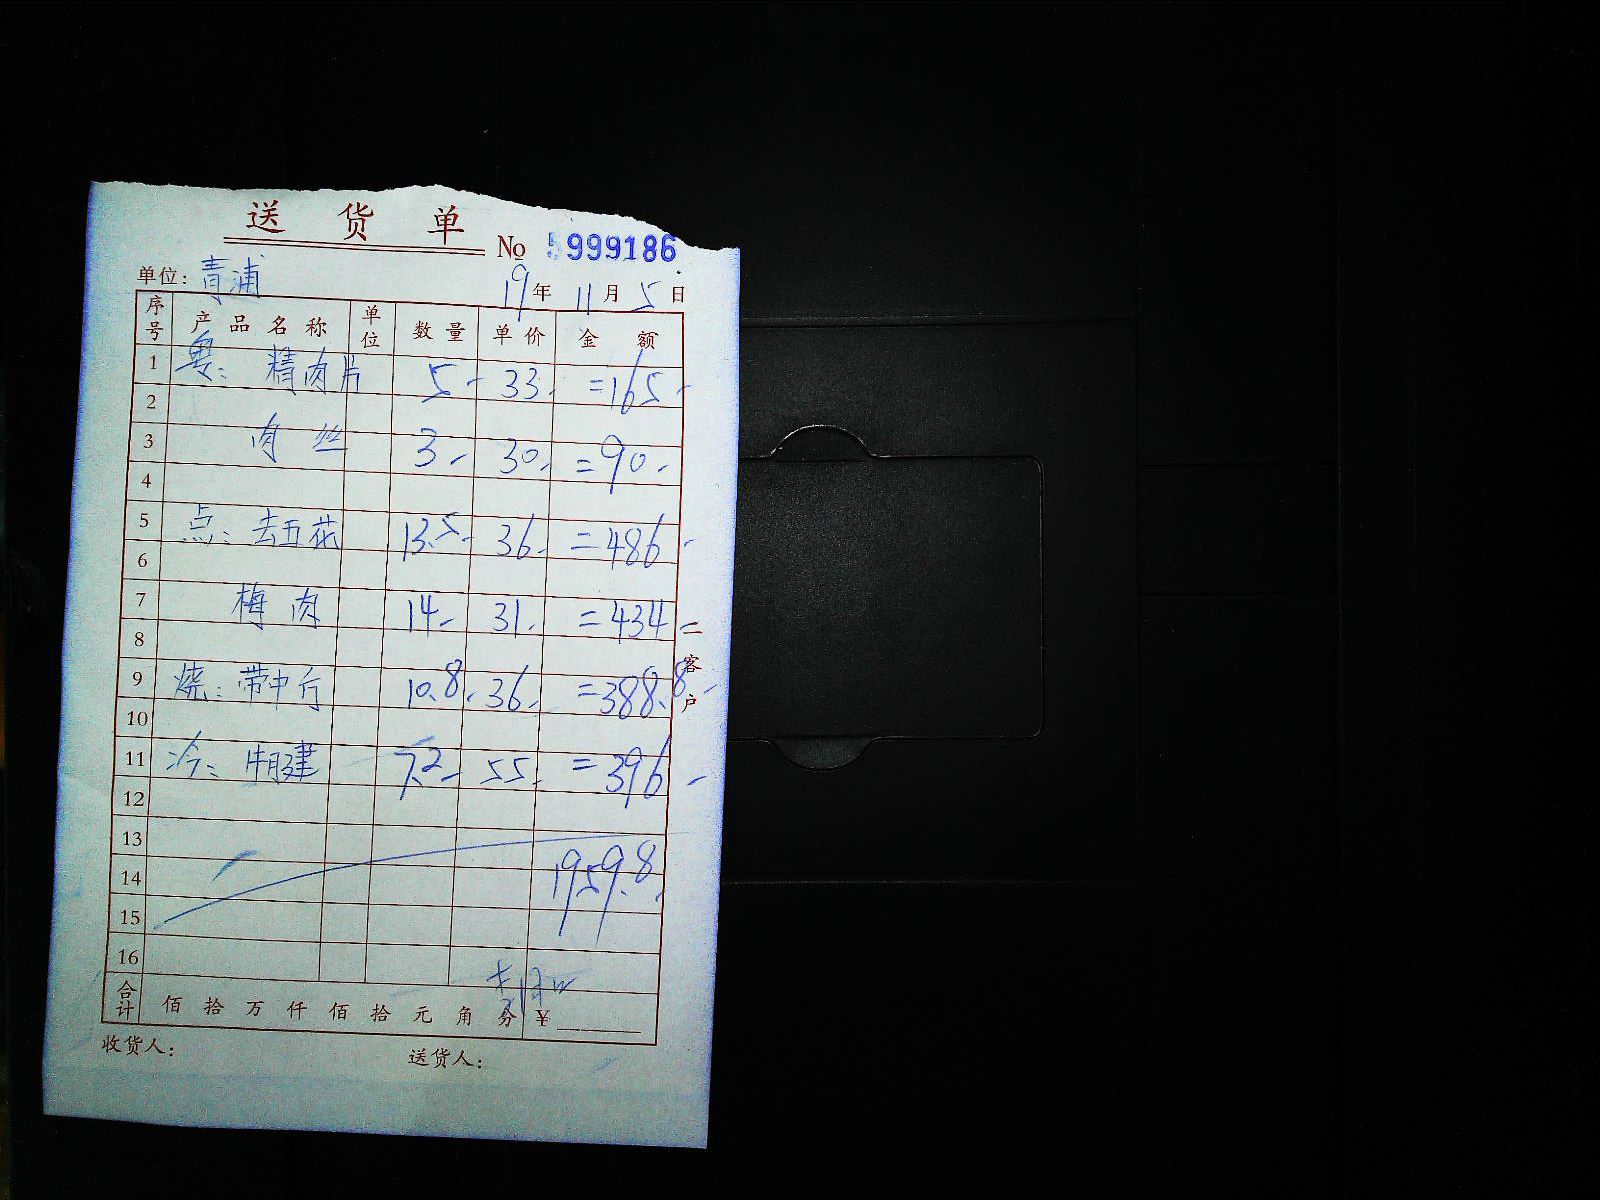 送 货 单
No 5999186
单位: 青浦 19年 11月 5日
序号 产品名称 单位 数量 单价 金额
1 粤: 精肉片 5- 33. =165-
2
3 肉丝 3- 30. =90.
4
5 点: 去五花 13.5- 36. =486-
6
7 梅肉 14- 31. =434-
8
9 烧: 带中方 10.8. 36. =388.8-
10
11 冷: 牛月建 7.2- 55. =396-
12
13
14 1959.8.
15
16
合计 佰 拾 万 仟 佰 拾 元 角 分 ¥
收货人: 送货人:
一客户